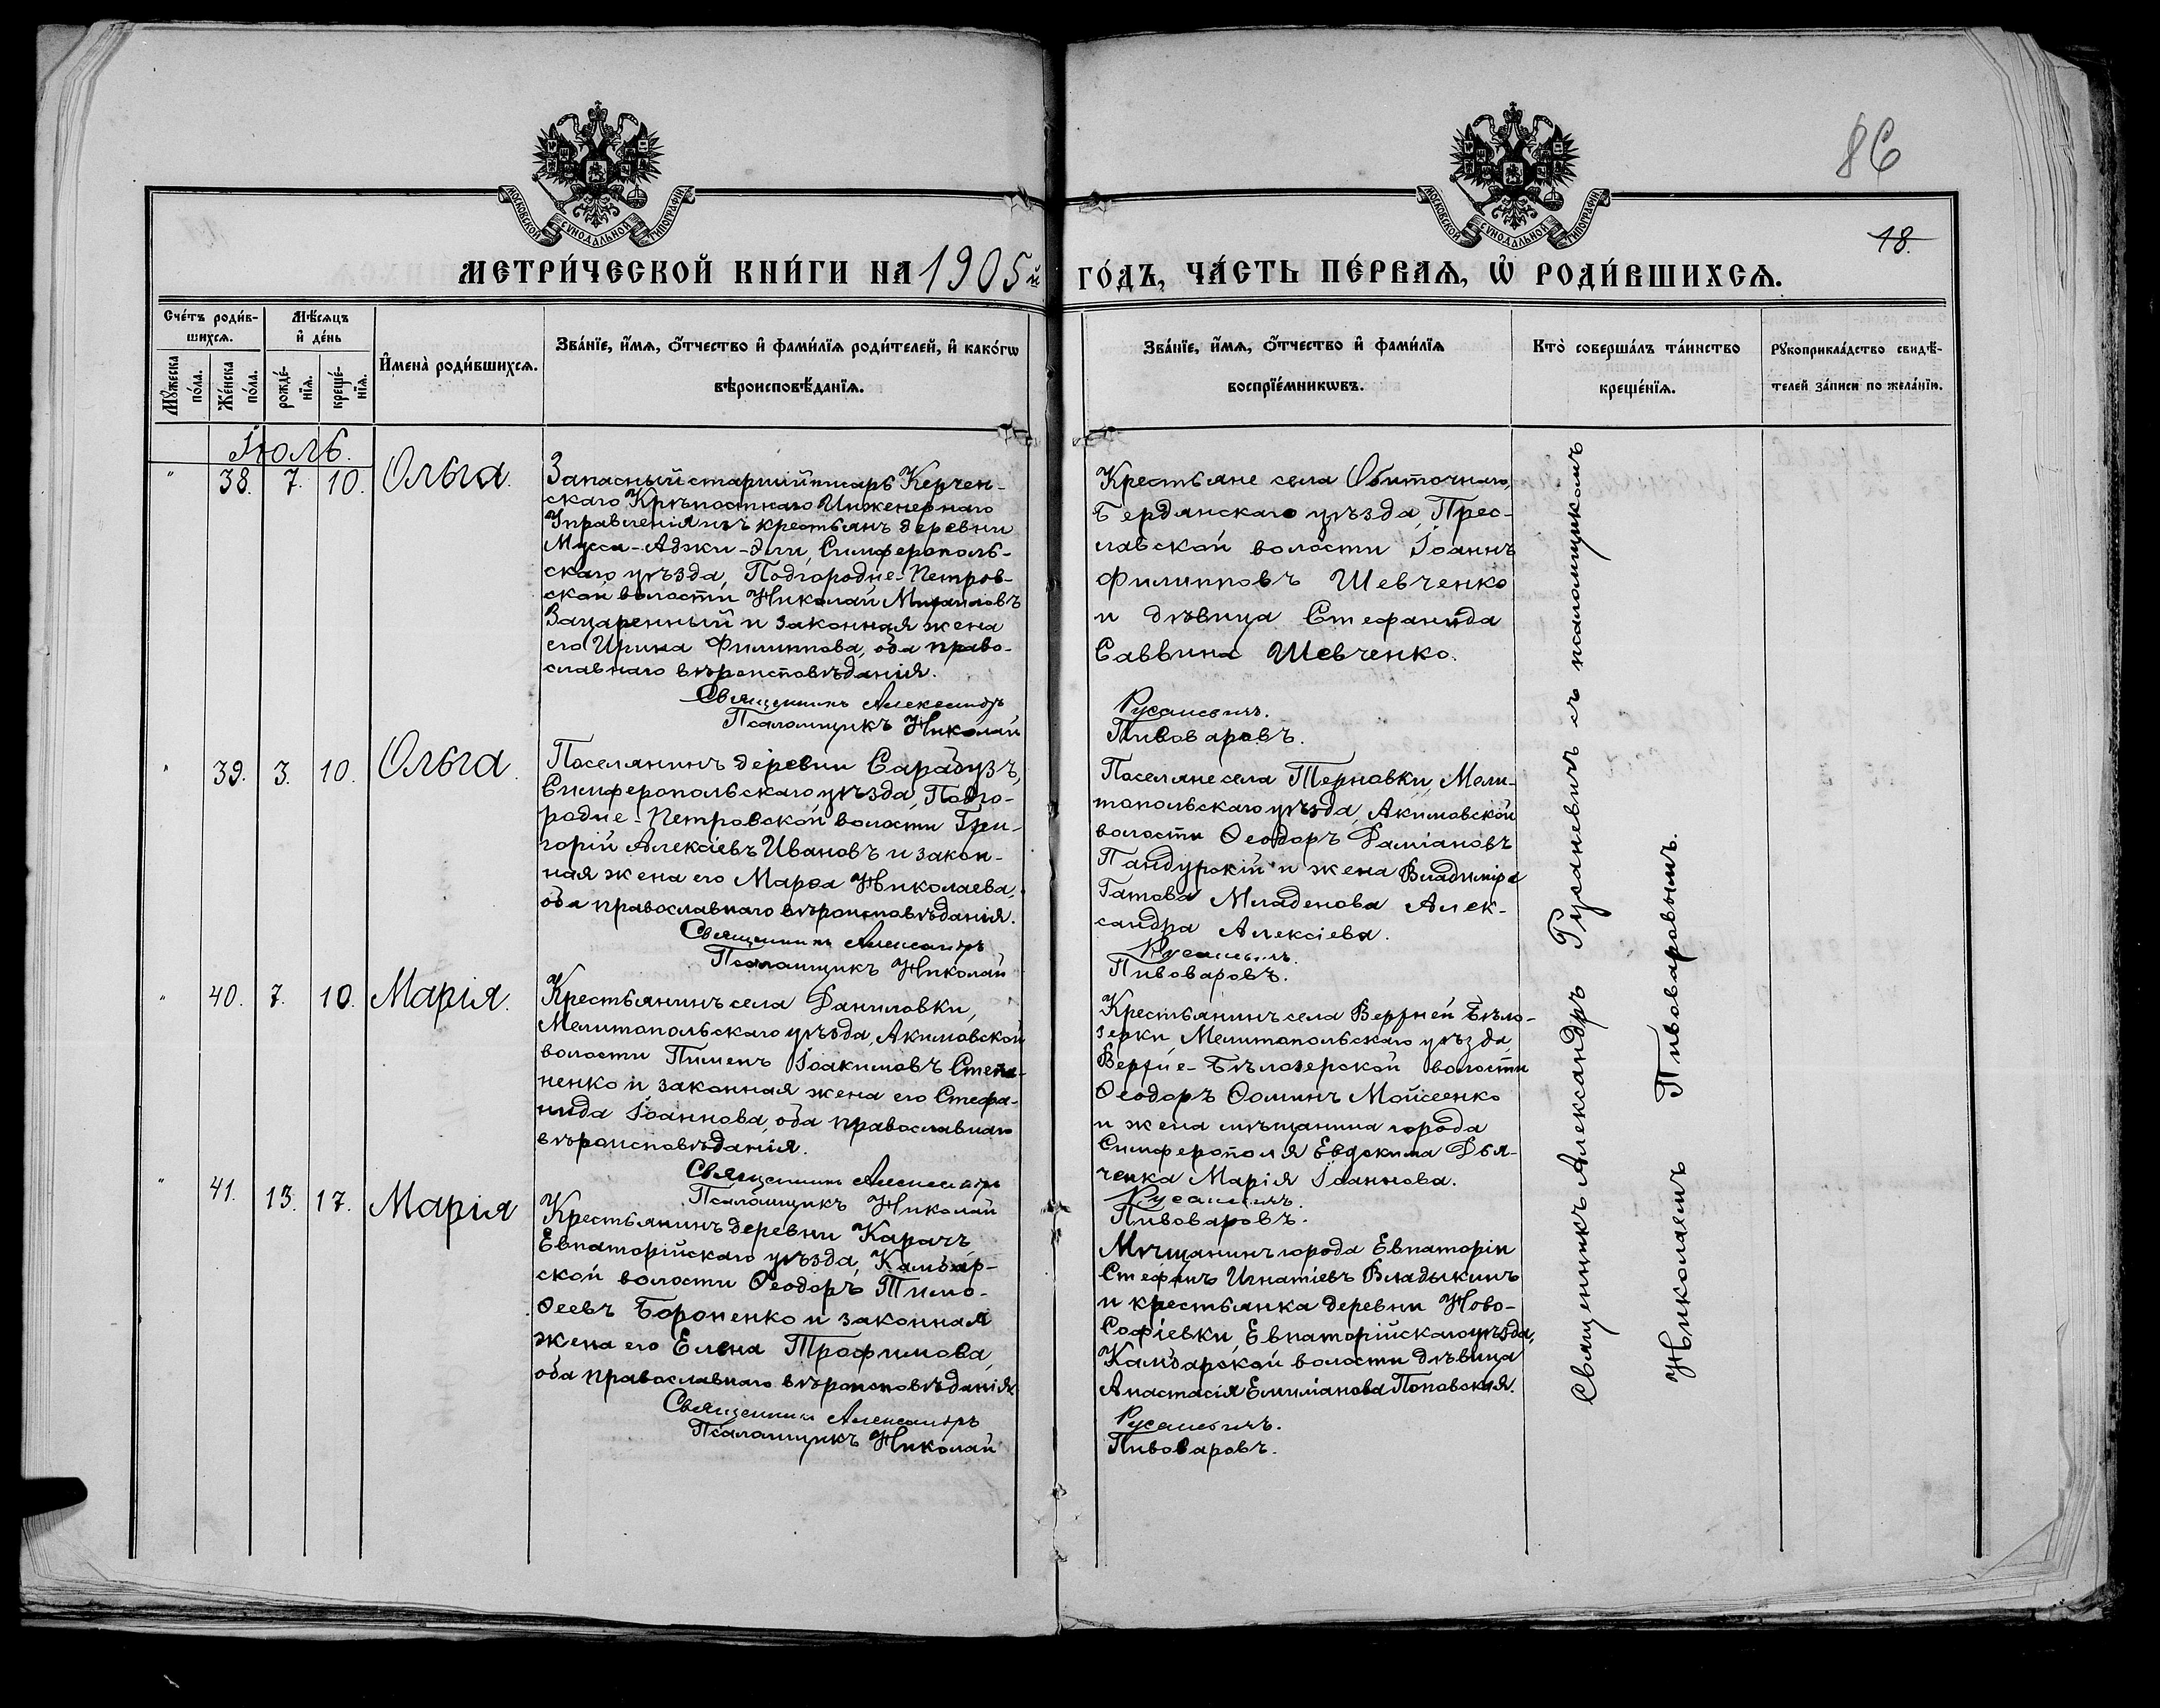 86
18.
МОСКОВСКОЙ СѴНОДАЛЬНОЙ ТИПОГРАФІИ
МОСКОВСКОЙ СѴНОДАЛЬНОЙ ТИПОГРАФІИ
МЕТРИ́ЧЕСКОЙ КНИ́ГИ НА 1905й ГО́ДЪ, ЧА́СТЬ ПЕ́РВАѦ, Ѡ҆ РОДИ́ВШИХСѦ.
Сче́тъ роди́в-
шихсѧ.
Мꙋ́жеска
по́ла.
Же́нска
по́ла.
Мѣ́сѧцъ
и҆ де́нь
рожде́-
нїѧ.
креще́-
нїѧ.
И҆мена̀ роди́вшихсѧ.
Зва́нїе, и҆́мѧ, ѻ҆́тчество и҆ фамѝлїѧ роди́телей, и҆ како́гѡ
вѣроисповѣ́данїѧ.
Зва́нїе, и҆́мѧ, ѻ҆́тчество и҆ фамѝлїѧ
воспрїе́мникѡвъ.
Кто̀ соверша́лъ та́инство
креще́нїѧ.
Рꙋкоприкла́дство свидѣ́-
телей за́писи по жела́нїю.
Іюль.
" 38. 7. 10. Ольга.
Запасный старшій писарь Керчен-
скаго Крѣпостнаго Инженернаго
Управленія изъ крестьянъ деревни
Мусса-Аджи-Эли, Симферополь-
скаго уѣзда, Подгородне-Петров-
ской волости Николай Михаиловъ
Зацаренный и законная жена
его Ирина Филиппова, оба право-
славнаго вѣроисповѣданія.
Священникъ Александръ
Псаломщикъ Николай
Крестьяне села Обиточнаго,
Бердянскаго уѣзда, Прес-
лавской волости Іоаннъ
Филипповъ Шевченко
и дѣвица Стефанида
Саввина Шевченко.
Русаневичъ.
Пивоваровъ.
" 39. 3. 10. Ольга.
Поселянинъ деревни Сарабузъ,
Симферопольскаго уѣзда, Подго-
родне-Петровской волости Гри-
горій Алексіевъ Ивановъ и закон-
ная жена его Марѳа Николаева,
оба православнаго вѣроисповѣданія.
Священникъ Александръ
Псаломщикъ Николай
Поселяне села Терновки, Мели-
топольскаго уѣзда, Акимовской
волости Ѳеодоръ Даміановъ
Пандурскій и жена Владиміра
Гатова Младенова Алек-
сандра Алексіева.
Русаневичъ.
Пивоваровъ.
" 40. 7. 10. Марія.
Крестьянинъ села Даниловки,
Мелитопольскаго уѣзда, Акимовской
волости Пименъ Іоакимовъ Степа-
ненко и законная жена его Стефа-
нида Іоаннова, оба православнаго
вѣроисповѣданія.
Священникъ Александръ
Псаломщикъ Николай
Крестьянинъ села Верхней Бѣло-
зерки, Мелитопольскаго уѣзда
Верхне-Бѣлозерской волости
Ѳеодоръ Ѳоминъ Мойсеенко
и жена мѣщанина города
Симферополя Евдокима Дья-
ченка Марія Іоаннова.
Русаневичъ.
Пивоваровъ.
" 41. 13. 17. Марія
Крестьянинъ деревни Карачъ,
Евпаторійскаго уѣзда, Камбар-
ской волости Ѳеодоръ Тимо-
ѳеевъ Бороненко и законная
жена его Елена Трофимова,
оба православнаго вѣроисповѣданія.
Священникъ Александръ
Псаломщикъ Николай
Мѣщанинъ города Евпаторіи
Стефанъ Игнатіевъ Владыкинъ
и крестьянка деревни Ново-
Софіевки, Евпаторійскаго уѣзда,
Камбарской волости дѣвица
Анастасія Емиліанова Поповская.
Русаневичъ.
Пивоваровъ.
Священникъ Александръ Русаневичъ съ псаломщикомъ
Николаемъ Пивоваровымъ.